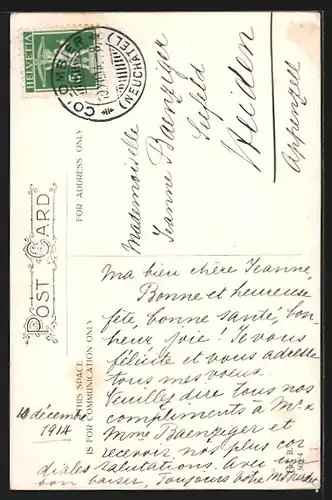 HELVETIA
COLOMBIER
(NEUCHÂTEL)
POST CARD
FOR ADDRESS ONLY
THIS SPACE
IS FOR COMMUNICATION ONLY
Mademoiselle
Jeanne Baenziger
Seefeld
Heiden
Appenzell
Ma bien chère Jeanne,
Bonne et heureuse
fête, bonne santé, bon-
heur, joie! Je vous
félicite et vous adresse
tous mes voeux.
Veuillez dire tous nos
compliments à Mr. &
Mme Baenziger et
recevoir nos plus cor
diales salutations. Avec un
bon baiser, Toujours votre
10 décembre
1914